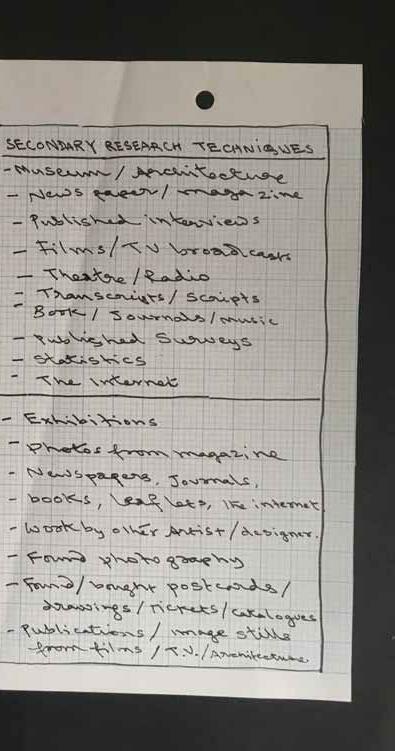 SECONDARY RESEARCH TECHNIQUES
- Museum / Architecture
- News paper / magazine
- Published interviews
- Films / TV broadcasts
- Theatre / Radio
- Transcripts / Scripts
- Book / Journals / music
- Published Surveys
- Statistics
- The Internet
- Exhibitions
- Photos from magazine
- Newspapers, Journals,
- books, leaflets, the internet
- Work by other Artist / designer.
- Found photography
- Found / bought postcards /
drawings / Tickets / Catalogues
- Publications / image stills
from films / T.V. / Architecture